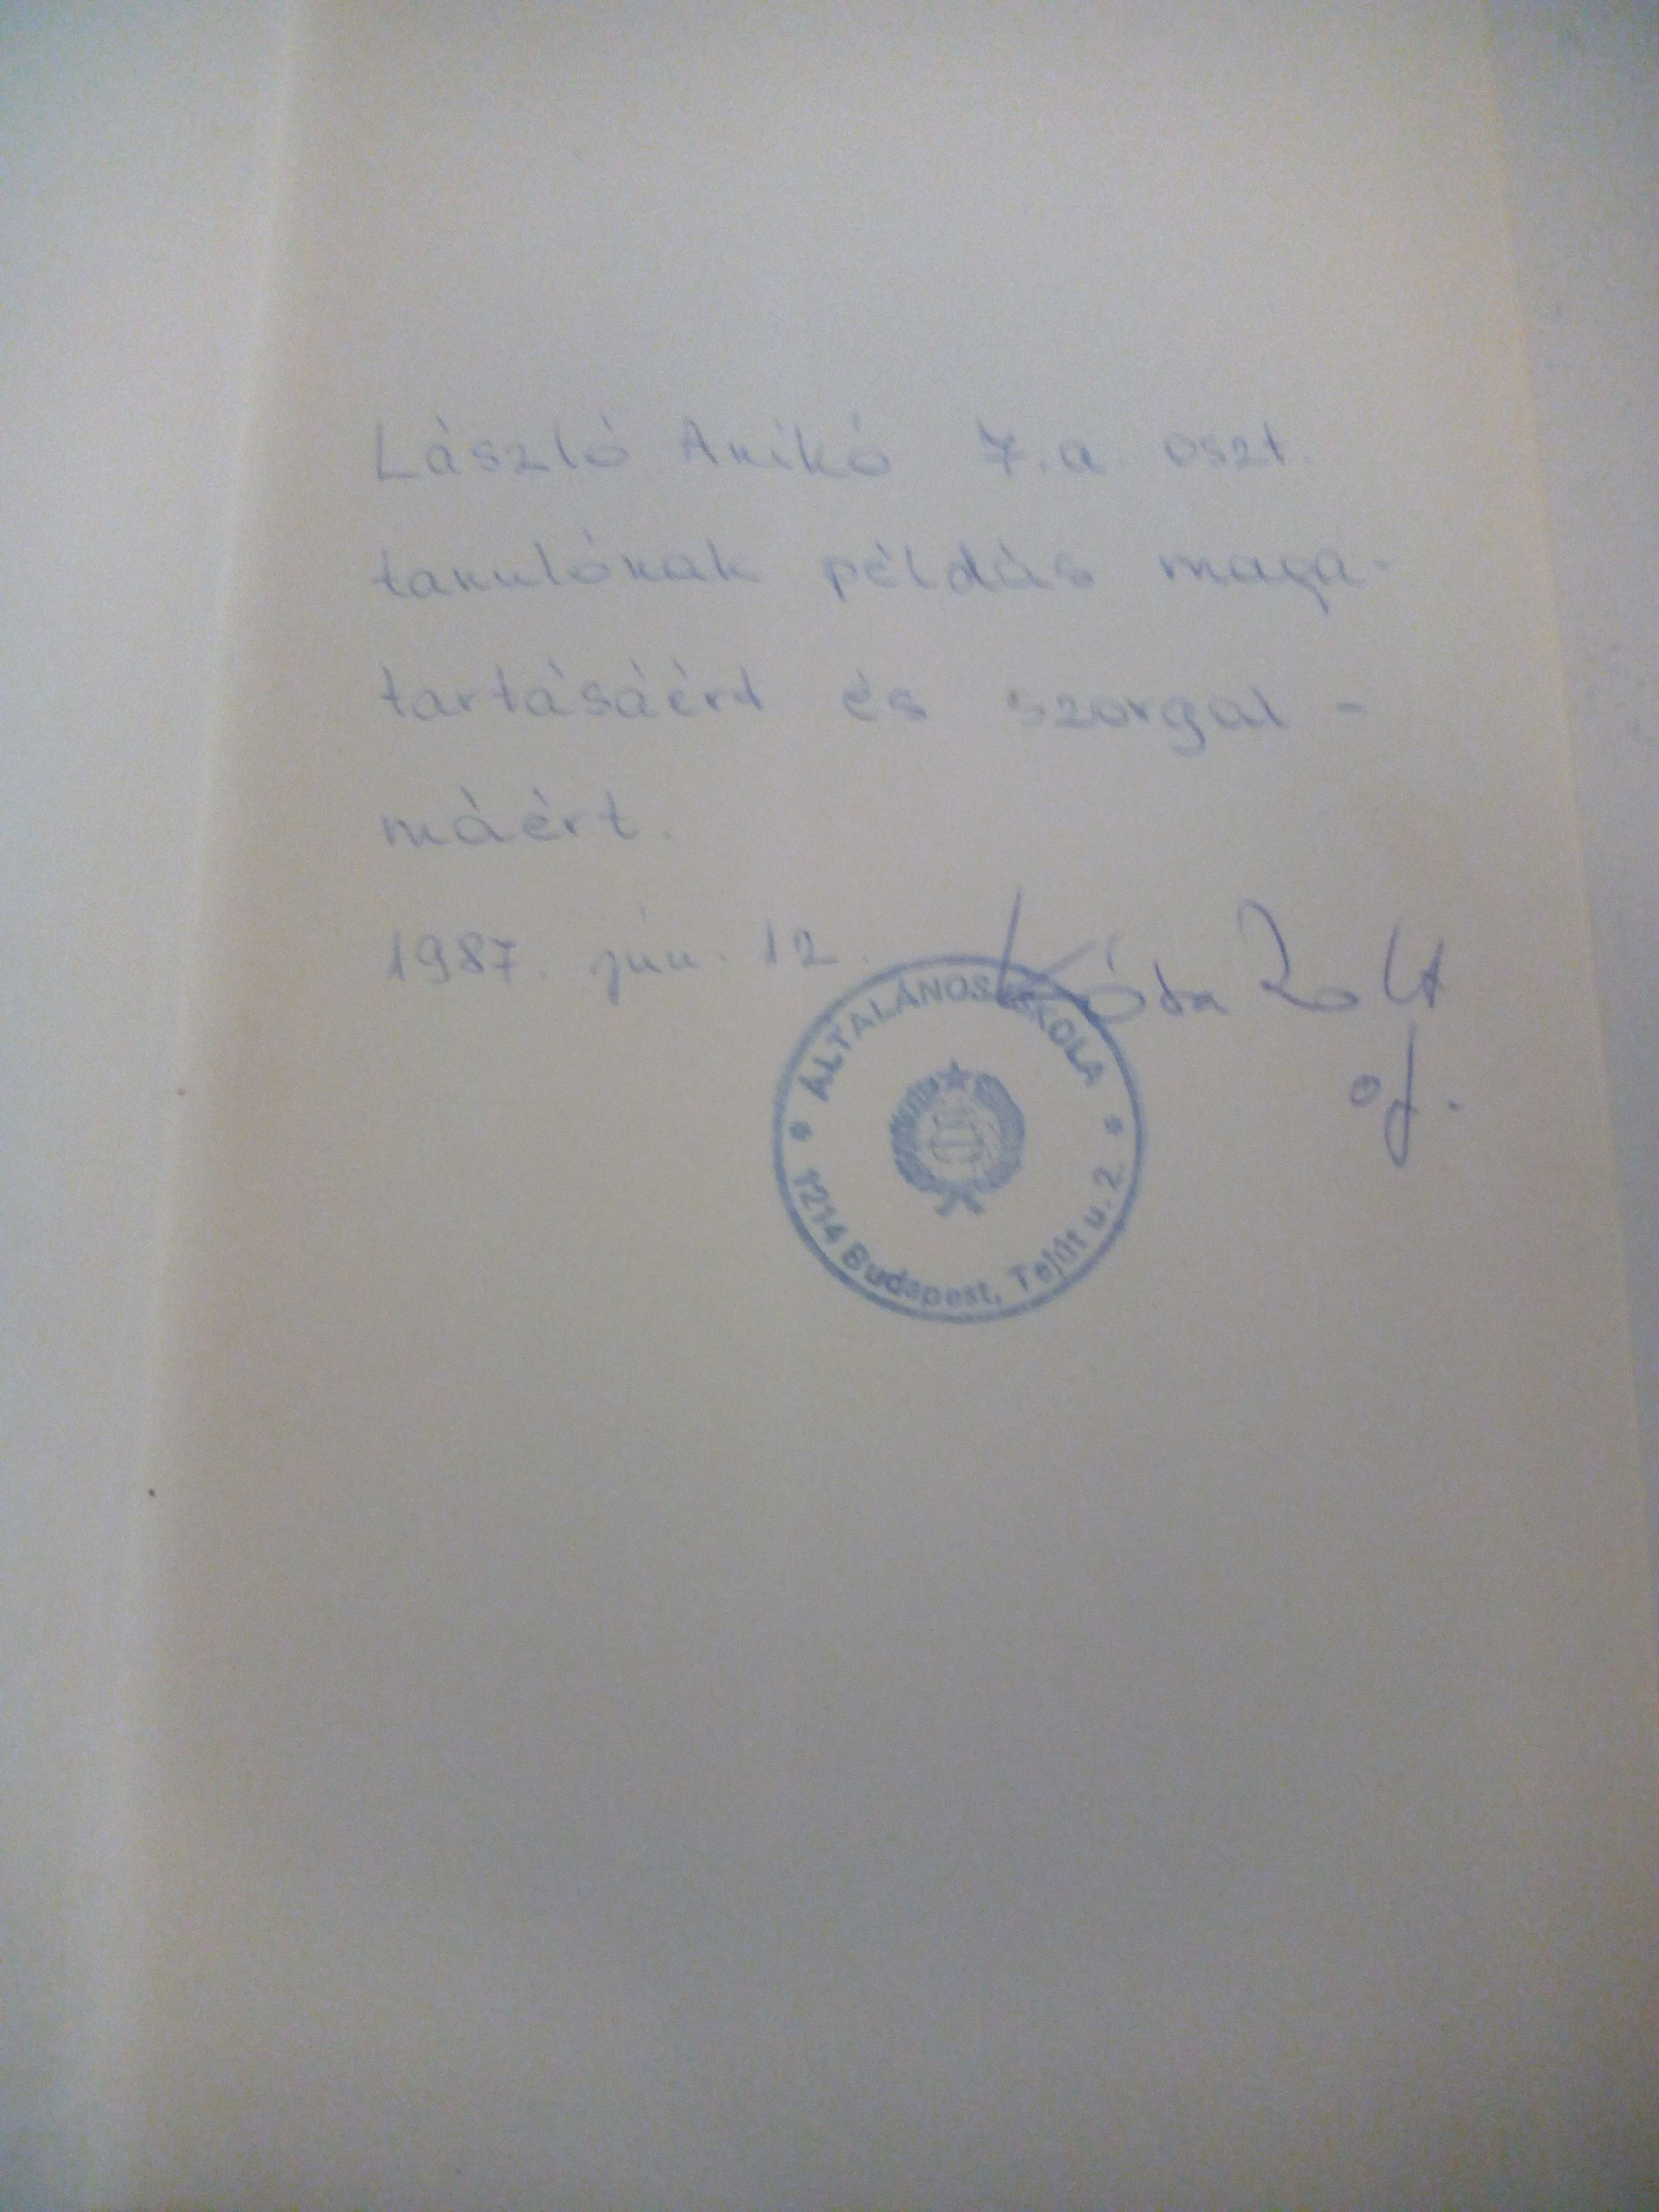 László Anikó 7.a oszt.
tanulónak példás maga-
tartásáért és szorgal-
máért.
1987. jún. 12.
Kóda Zolt
of.
ÁLTALÁNOS ISKOLA
1214 Budapest, Tejút u. 2.